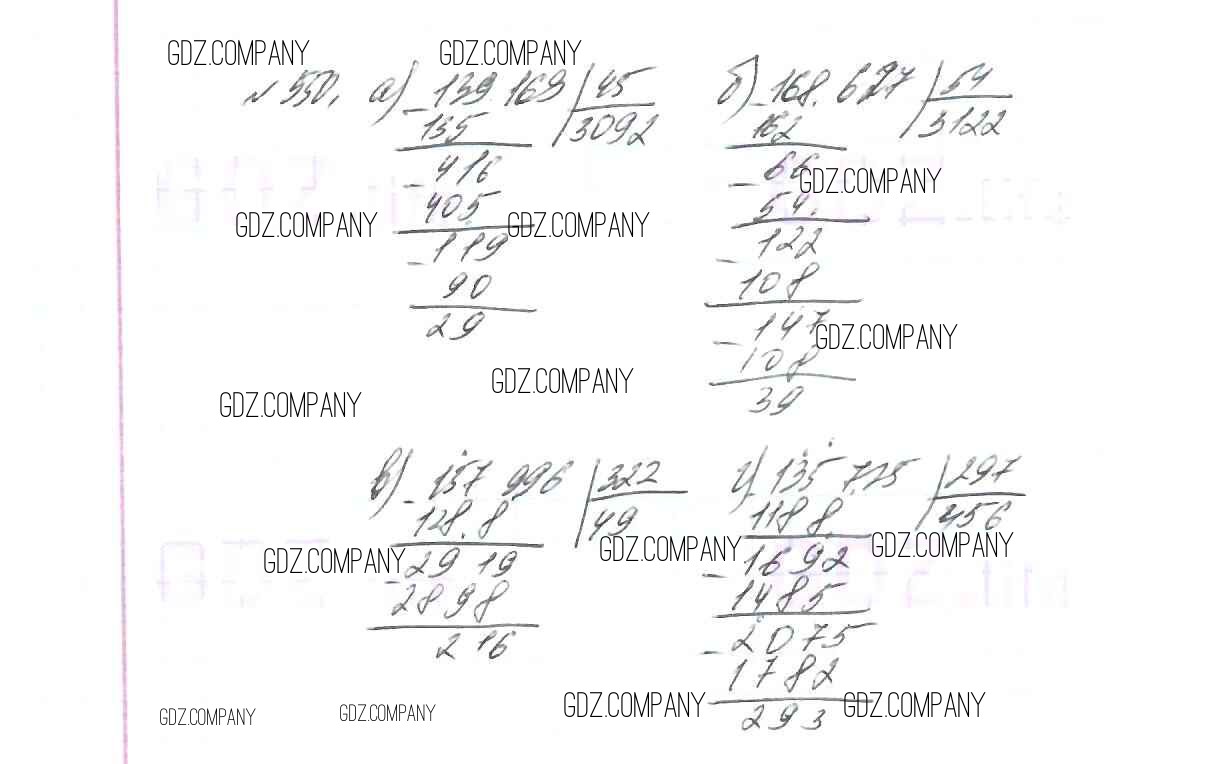 GDZ.COMPANY GDZ.COMPANY
№ 550. а) 139 169 | 45 б) 168.627 | 54
135 3092 162 3122
416 66
GDZ.COMPANY
405 54
GDZ.COMPANY GDZ.COMPANY
119 122
90 108
29 147
GDZ.COMPANY
108
GDZ.COMPANY
39
GDZ.COMPANY
в) 157 996 | 322 г) 135 725 | 297
128.8 49 1188 456
GDZ.COMPANY GDZ.COMPANY GDZ.COMPANY
2919 1692
2898 1485
216 2075
1782
GDZ.COMPANY GDZ.COMPANY GDZ.COMPANY GDZ.COMPANY
293